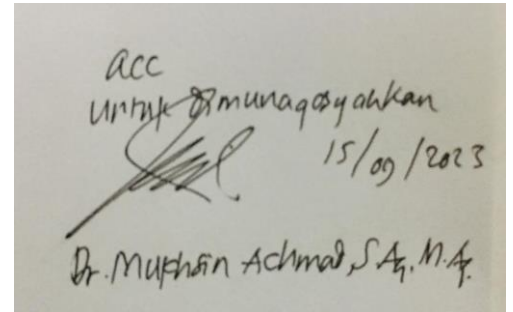 acc
untuk dimunaqosyahkan
15/09/2023
Dr. Mukhsin Achmad, S.Ag, M.Ag.